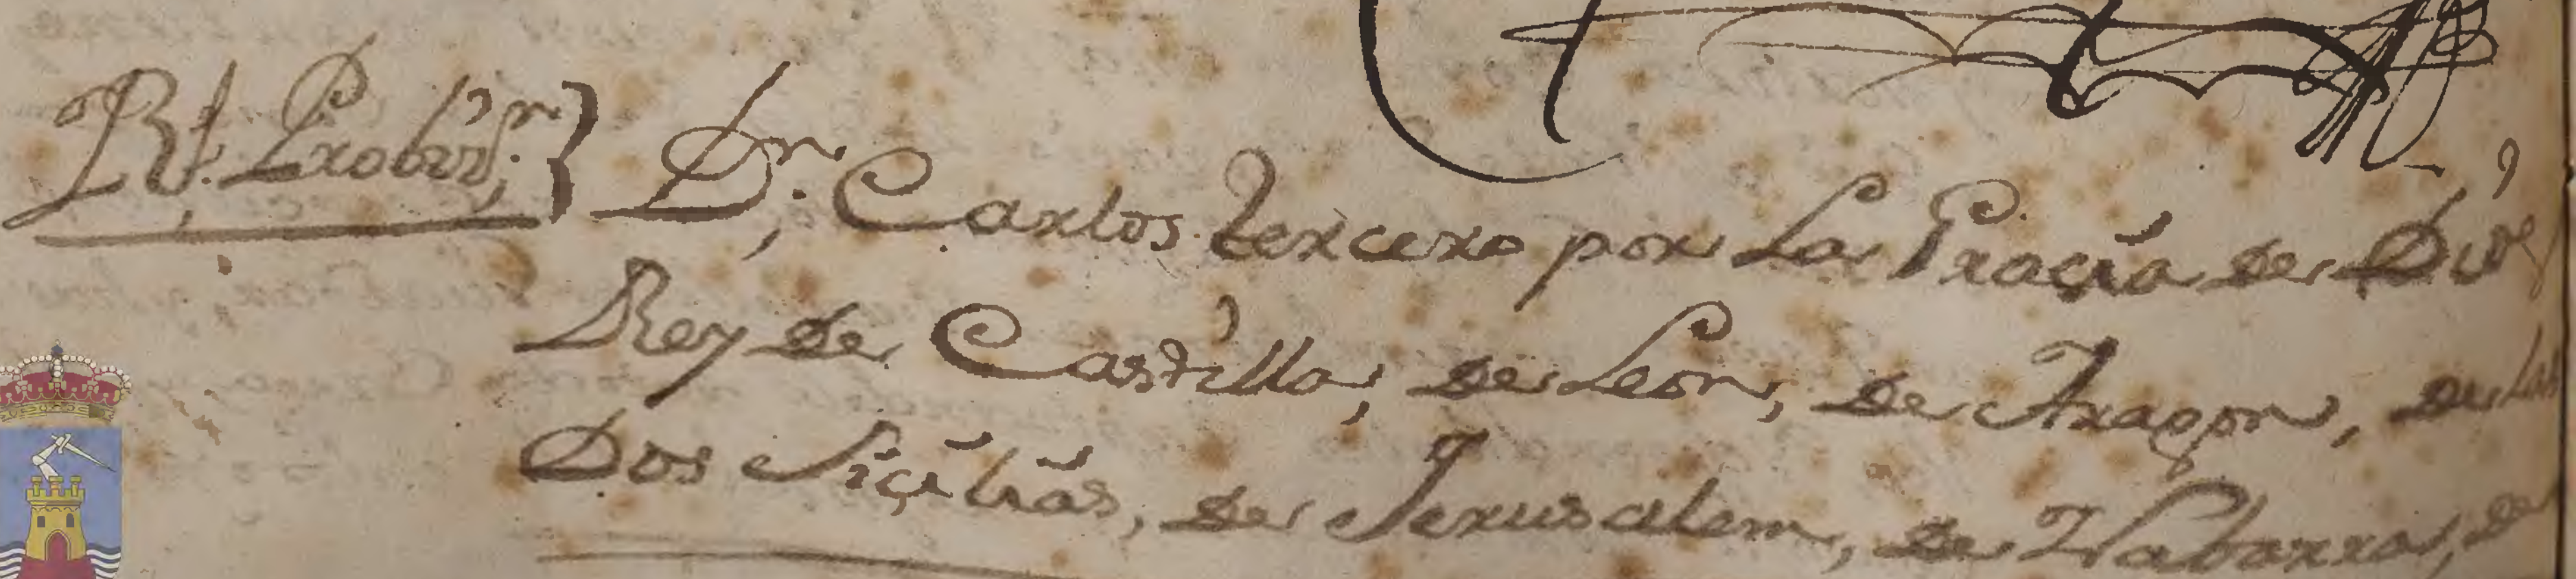 Rl. Probisn. } Dn. Carlos tercero por La Gracia de Dios
Rey de Castilla, de Leon, de Aragon, de las
Dos Siçilias, de Jerusalem, de Nabarra, de